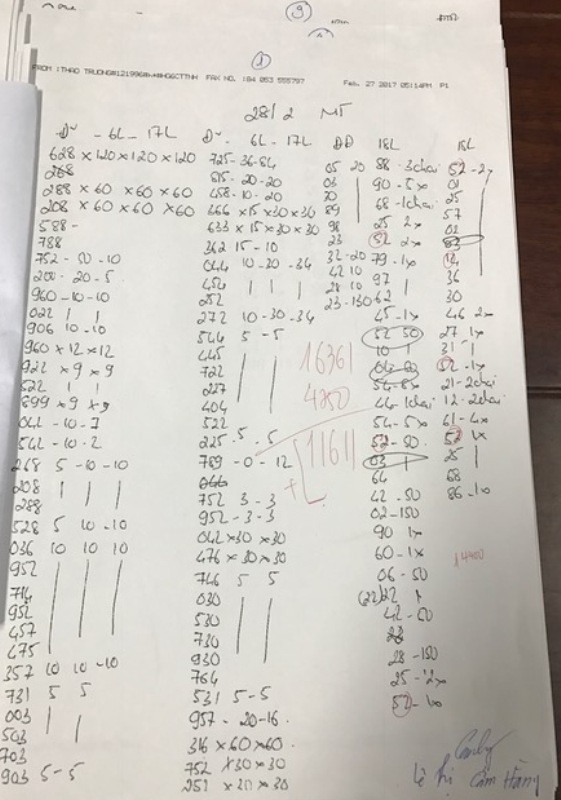 9
FROM :THAO TRUONG
FAX NO. :84 053 555797
Feb. 27 2017 05:14PM P1
1
28/2 MT
- 6L - 17L
628 x 120 x 120 x 120
268
288 x 60 x 60 x 60
208 x 60 x 60 x 60
588 -
788
752 - 50 - 10
200 - 20 - 5
960 - 10 - 10
022 | |
906 10 - 10
960 x 12 x 12
922 x 9 x 9
522 | |
899 x 9 x 9
042 - 10 - 7
542 - 10 - 2
268 5 - 10 - 10
208 | | |
288
528 5 10 - 10
036 10 10 10
952
714
952
457
475
357 10 10 - 10
731 5 5
003
503
703
903 5 - 5
6L - 17L
725 - 36 - 84
815 - 20 - 20
458 - 10 - 20
666 x 15 x 30 x 30
633 x 15 x 30 x 30
362 15 - 10
044 10 - 20 - 34
452 | | |
252
272 10 - 30 - 34
544 5 - 5
445
722
227
404
522
225 5 - 5
789 - 0 - 12
752 3 - 3
952 - 3 - 3
042 x 30 x 30
476 x 30 x 30
746 5 5
030
530
730
930
764
531 5 - 5
957 - 20 - 16
316 x 60 x 60
752 x 30 x 30
252 x 20 x 30
DD
05 20
03
30
89
98
23
32 - 20
42 10
28 10
23 - 130
16361
4750
11611
18L
88 - 3chai
90 - 5x
68 - 1chai
25 2x
52 2x
79 - 1x
97 |
62
45 - 1x
52 50
10 1
54 - 8x
44 - 1chai
54 - 5x
52 - 50
03 1
64
42 - 50
02 - 150
90 1x
60 - 1x
06 - 50
(22)22
42 - 50
28 - 150
25 - 2x
18L
52 - 2x
01
25
57
02
03
12
36
30
46 2x
27 1x
31 1
52 - 1x
21 - 2chai
12 - 2chai
61 - 4x
52 1x
25 |
68
86 - 1x
14400
Lê Thị Cẩm Hằng